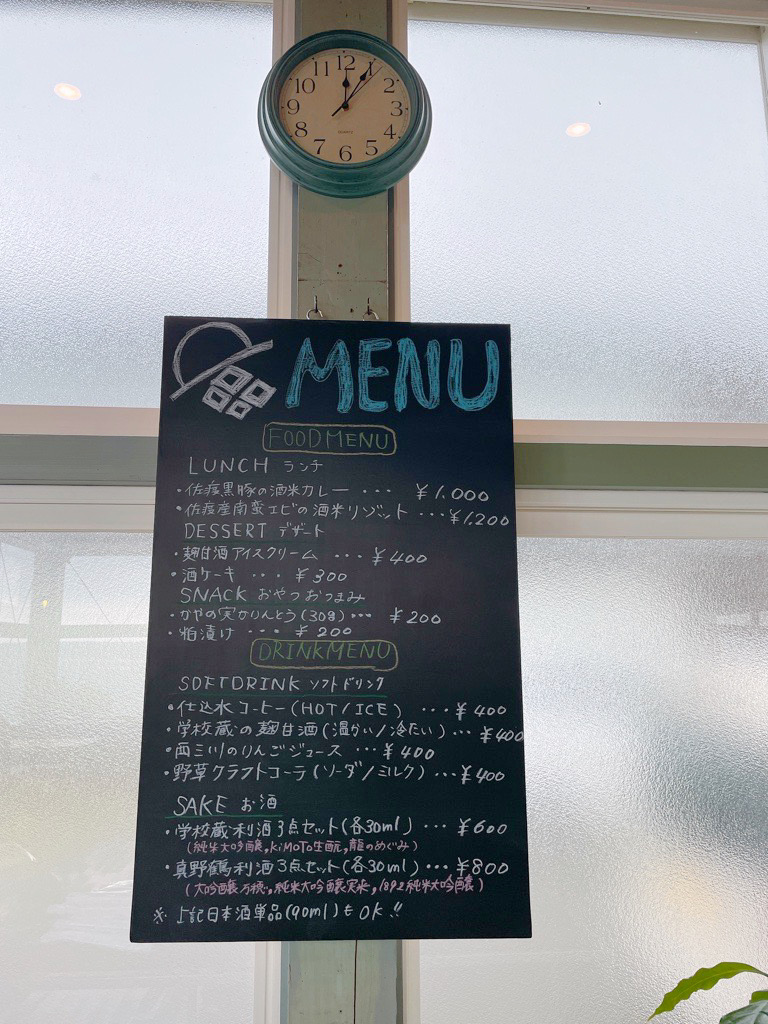 12
1
2
3
4
5
6
7
8
9
10
11
MENU
FOODMENU
LUNCH ランチ
・佐渡黒豚の酒米カレー ・・・ ¥1.000
・佐渡産南蛮エビの酒米リゾット ・・・¥1.200
DESSERT デザート
・麹甘酒アイスクリーム ・・・ ¥400
・酒ケーキ ・・・ ¥300
SNACK おやつおつまみ
・かやの実かりんとう(30g)・・・ ¥200
・粕漬け ・・・ ¥200
DRINKMENU
SOFTDRINK ソフトドリンク
・仕込水コーヒー(HOT/ICE) ・・・¥400
・学校蔵の麹甘酒(温かい/冷たい)・・・¥400
・西三川のりんごジュース ・・・¥400
・野草クラフトコーラ(ソーダ/ミルク)・・・¥400
SAKE お酒
・学校蔵利酒3点セット(各30ml) ・・・ ¥600
(純米大吟醸,KiMoTo生酛,龍のめぐみ)
・真野鶴利酒3点セット(各30ml)・・・¥800
(大吟醸万穂,純米大吟醸実来,1892純米大吟醸)
※上記日本酒単品(90ml)もOK!!